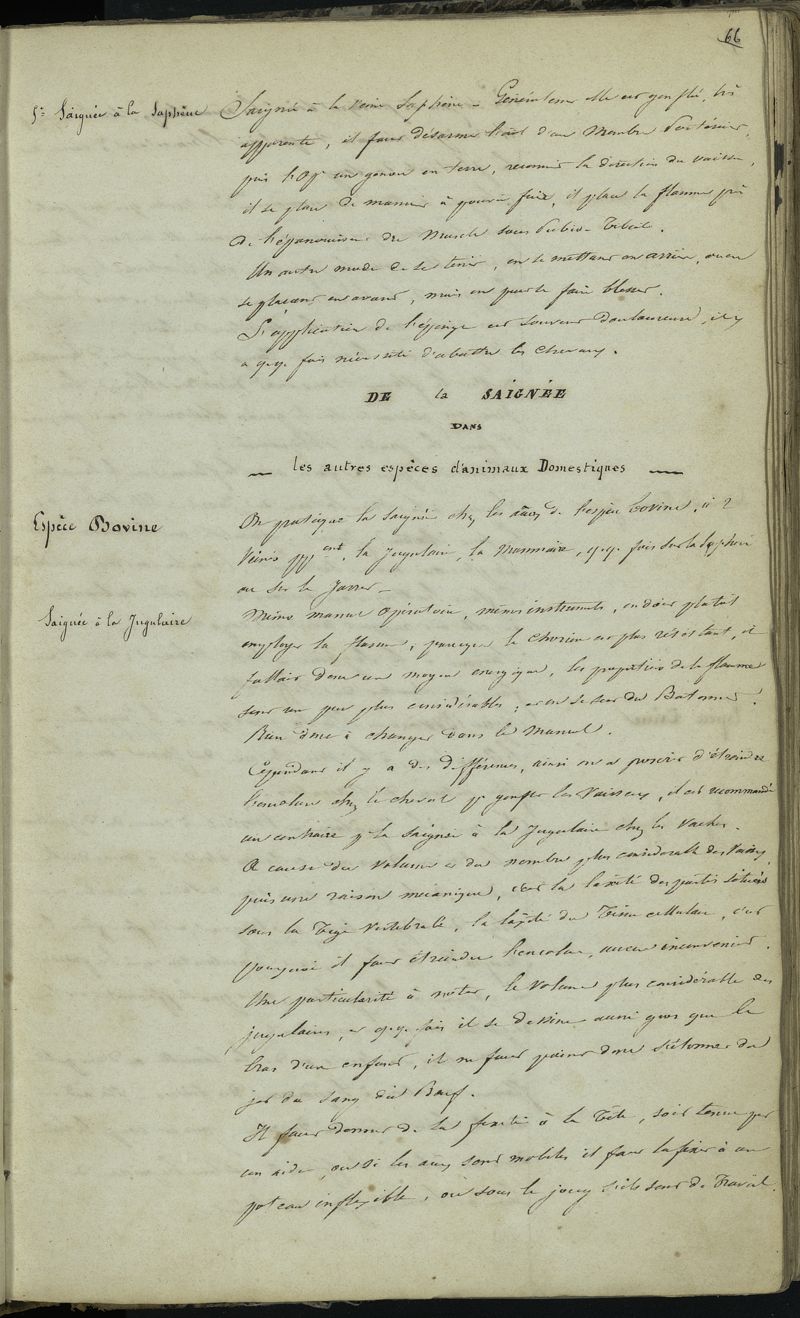 66
5º Saignée à la Saphène
Saignée à la veine Saphène – Généralement elle est gonflée, très
apparente, il faut désarmer l'un des Membres Postérieurs,
puis l'Op. un genou en terre, reconnait la direction du vaisseau,
il se place de manière à pouvoir fuir, il place la flamme près
de l'épanouissement du Muscle sous Pubio-Tibial.
Un autre mode de se tenir, en se mettant en arrière, ou en
se plaçant en avant, mais on peut se faire blesser.
L'application de l'épingle est souvent douloureuse, il y
a qq. fois nécessité d'abattre les chevaux.
DE la SAIGNÉE
DANS
les autres espèces d'animaux Domestiques
Espèce Bovine
On pratique la saignée chez les aux de l'espèce bovine, à 2
Veines ppent, la Jugulaire, la Mammaire, qq. fois sur la Saphène
ou sur le Jarret –
Saignée à la Jugulaire
Même manuel opératoire, mêmes instruments, on doit plutôt
employer la flamme, parceque le chorion est plus résistant, il
fallait donc un moyen énergique, les proportions de la flamme
sont un peu plus considérables, et on se sert du Batonnet.
Rien donc à changer dans le Manuel.
Cependant il y a des différences, ainsi on a proscrit d'étreindre
l'encolure chez le cheval pr gonfler les Vaisseaux, il est recommandé
au contraire pr la saignée à la Jugulaire chez les Vaches.
A cause du Volume et du nombre plus considérable des Vaisseaux,
puis une raison mécanique, c'est la laxité des parties situées
sous la Tige Vertébrale, la laxité du Tissu cellulaire, c'est
pourquoi il faut étreindre l'encolure, aucun inconvénient.
Une particularité à noter, le Volume plus considérable des
jugulaires, et qq. fois il se dessine aussi gros que le
bras d'un enfant, il ne faut point donc s'étonner du
jet du sang du Boeuf.
Il faut donner de la fixité à la Tête, soit tenue par
un aide, ou si les aux sont mobiles il faut la fixer à un
poteau inflexible, ou sous le joug s'ils sont de Travail.